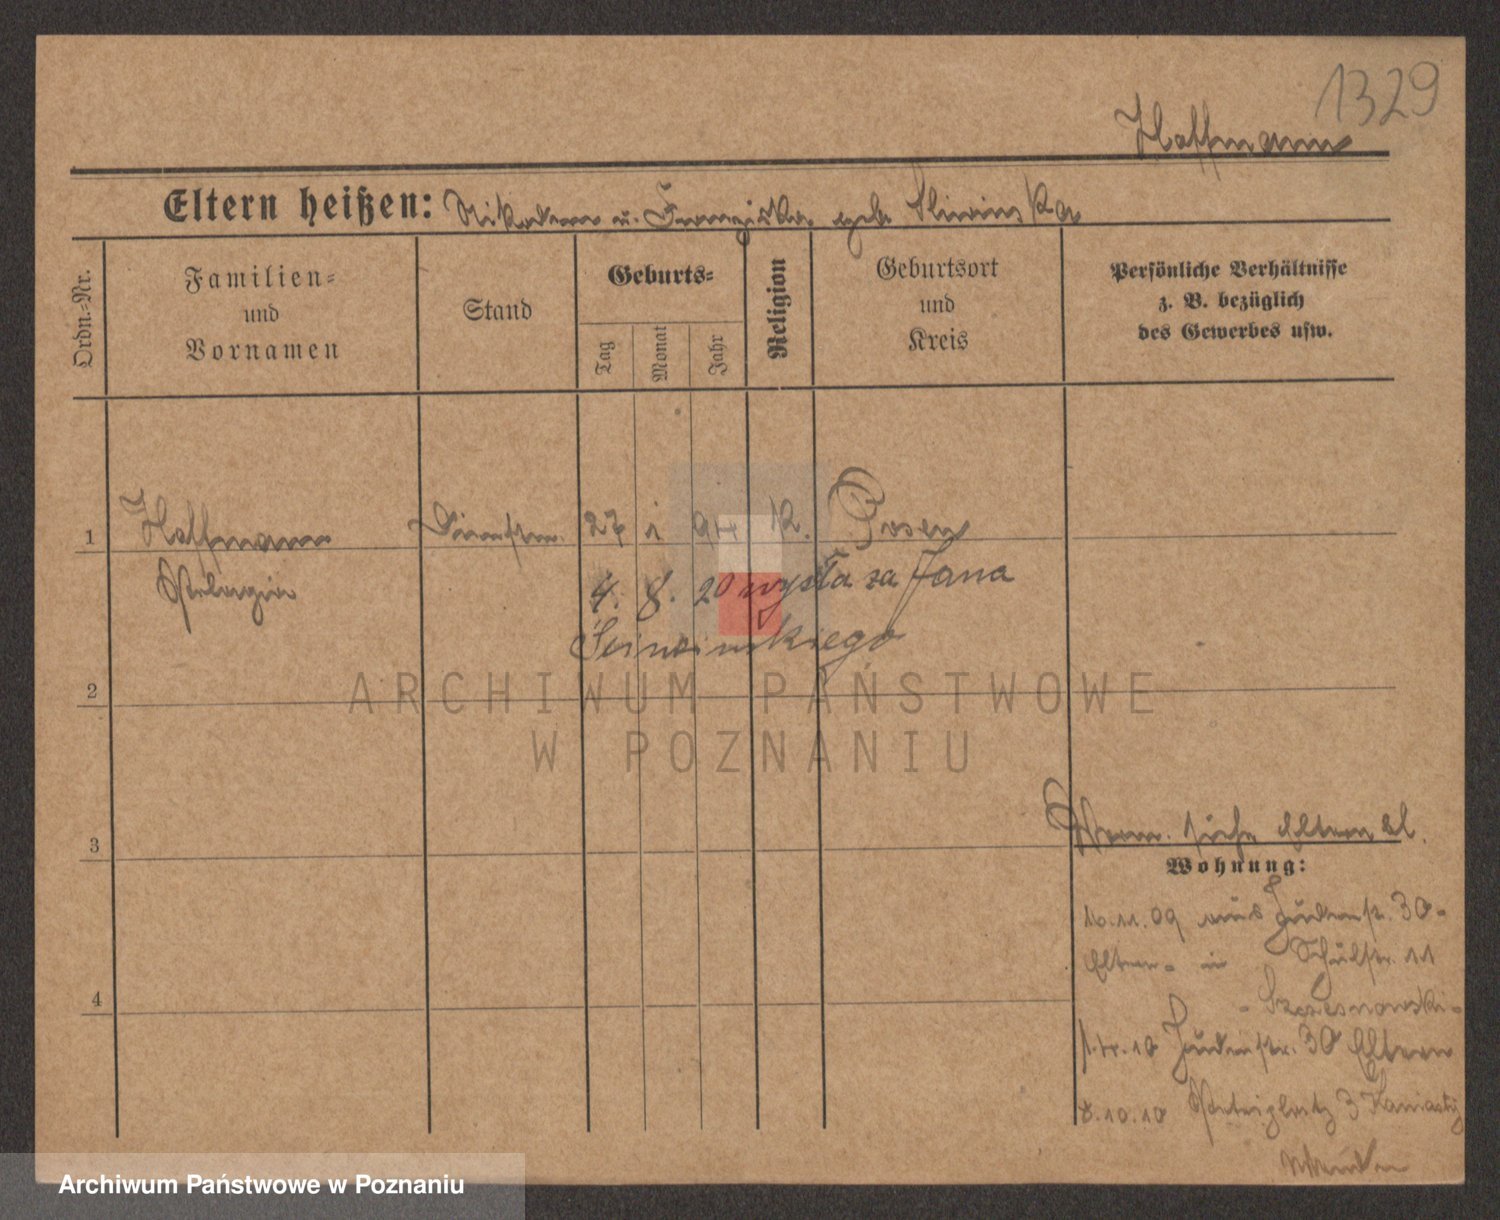 1329
Hoffmann
Eltern heißen: Nikodem u. Franziska geb. Sliwinska
Ordn.-Nr.
Familien-
und
Vornamen
Stand
Geburts-
Tag
Monat
Jahr
Religion
Geburtsort
und
Kreis
Persönliche Verhältnisse
z. B. bezüglich
des Gewerbes usw.
1 Hoffmann 27 1 94 K. Posen
Pelagia
4. 8. 20 wyszła za Jana
2
ARCHIWUM PAŃSTWOWE
W POZNANIU
3
siehe Eltern
Wohnung:
10.11.09 aus Judenstr. 30
Eltern - in Schulstr. 11
4
10 Judenstr. 30 Eltern
8.10.10 Petriplatz 3
Archiwum Państwowe w Poznaniu